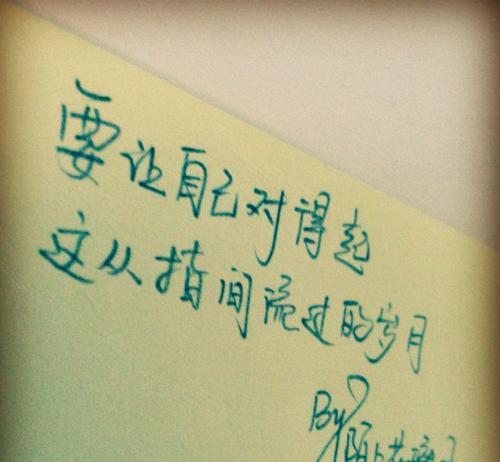 要让自己对得起
这从指间流过的岁月
By
陌上